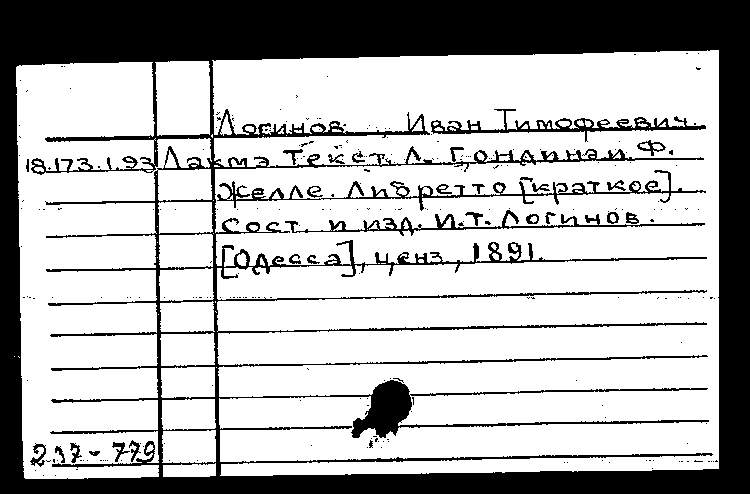 Логинов, Иван Тимофеевич.
18.173.1.93 Лакмэ Текст. Л. Гондинэ и Ф.
Желле. Либретто [краткое].
Сост. и изд. И.Т. Логинов.
[Одесса], ценз., 1891.
237-779